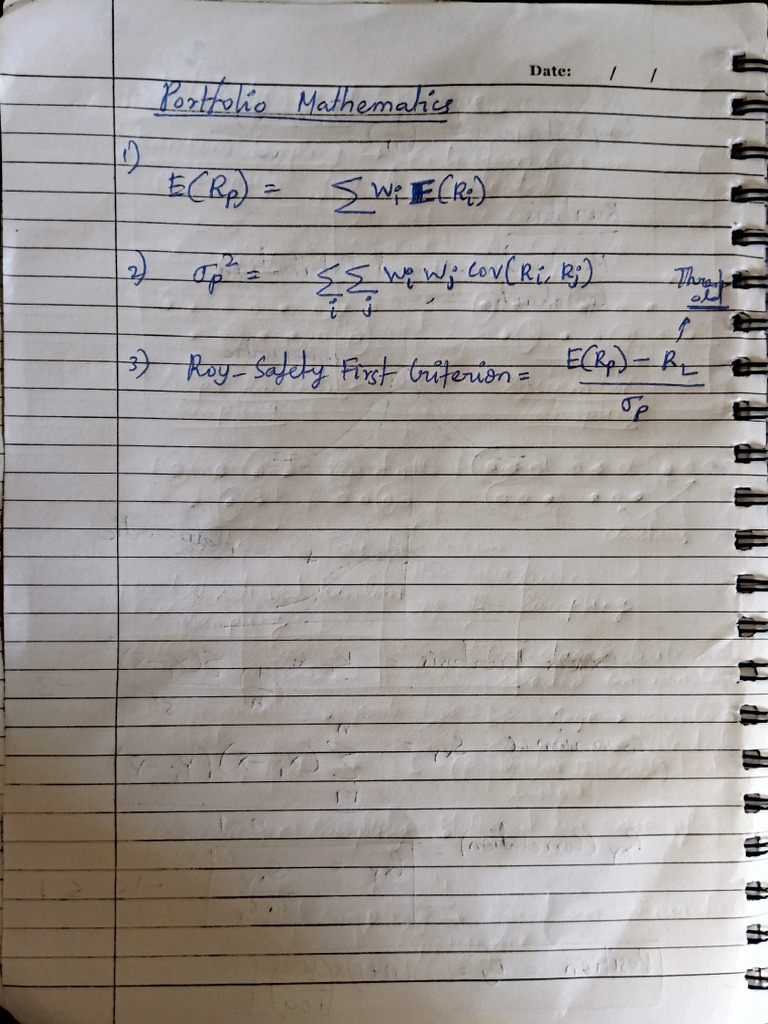 Date: / /
Portfolio Mathematics
1)
E(Rp) = ∑ Wi E(Ri)
2) σp² = ∑i ∑j Wi Wj Cov(Ri, Rj)
Thresh
old
↑
3) Roy-Safety First Criterion = E(Rp) - RL / σp